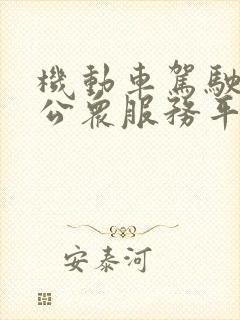 機動車駕駛
公眾服務平
安泰河